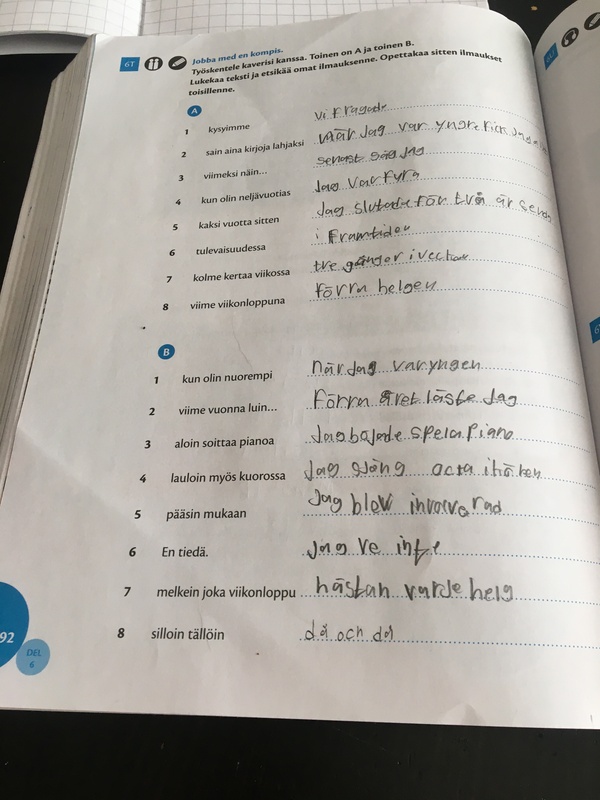 6T
Jobba med en kompis.
Työskentele kaverisi kanssa. Toinen on A ja toinen B.
Lukekaa teksti ja etsikää omat ilmauksenne. Opettakaa sitten ilmaukset
toisillenne.
A
1 kysyimme vi fragade
2 sain aina kirjoja lahjaksi när Jag var yngre fick
3 viimeksi näin... senast såg Jag
4 kun olin neljävuotias Jag var fyra
5 kaksi vuotta sitten Jag slutade för två år
6 tulevaisuudessa i framtiden
7 kolme kertaa viikossa tre gånger
8 viime viikonloppuna förra helgen
B
1 kun olin nuorempi när Jag var yngen
2 viime vuonna luin... förra året läste Jag
3 aloin soittaa pianoa Jag böjade spela piano
4 lauloin myös kuorossa Jag sjöng
5 pääsin mukaan Jag blew involverad
6 En tiedä. Jag ve inte
7 melkein joka viikonloppu hästan varde helg
8 silloin tällöin då och då
92
DEL
6